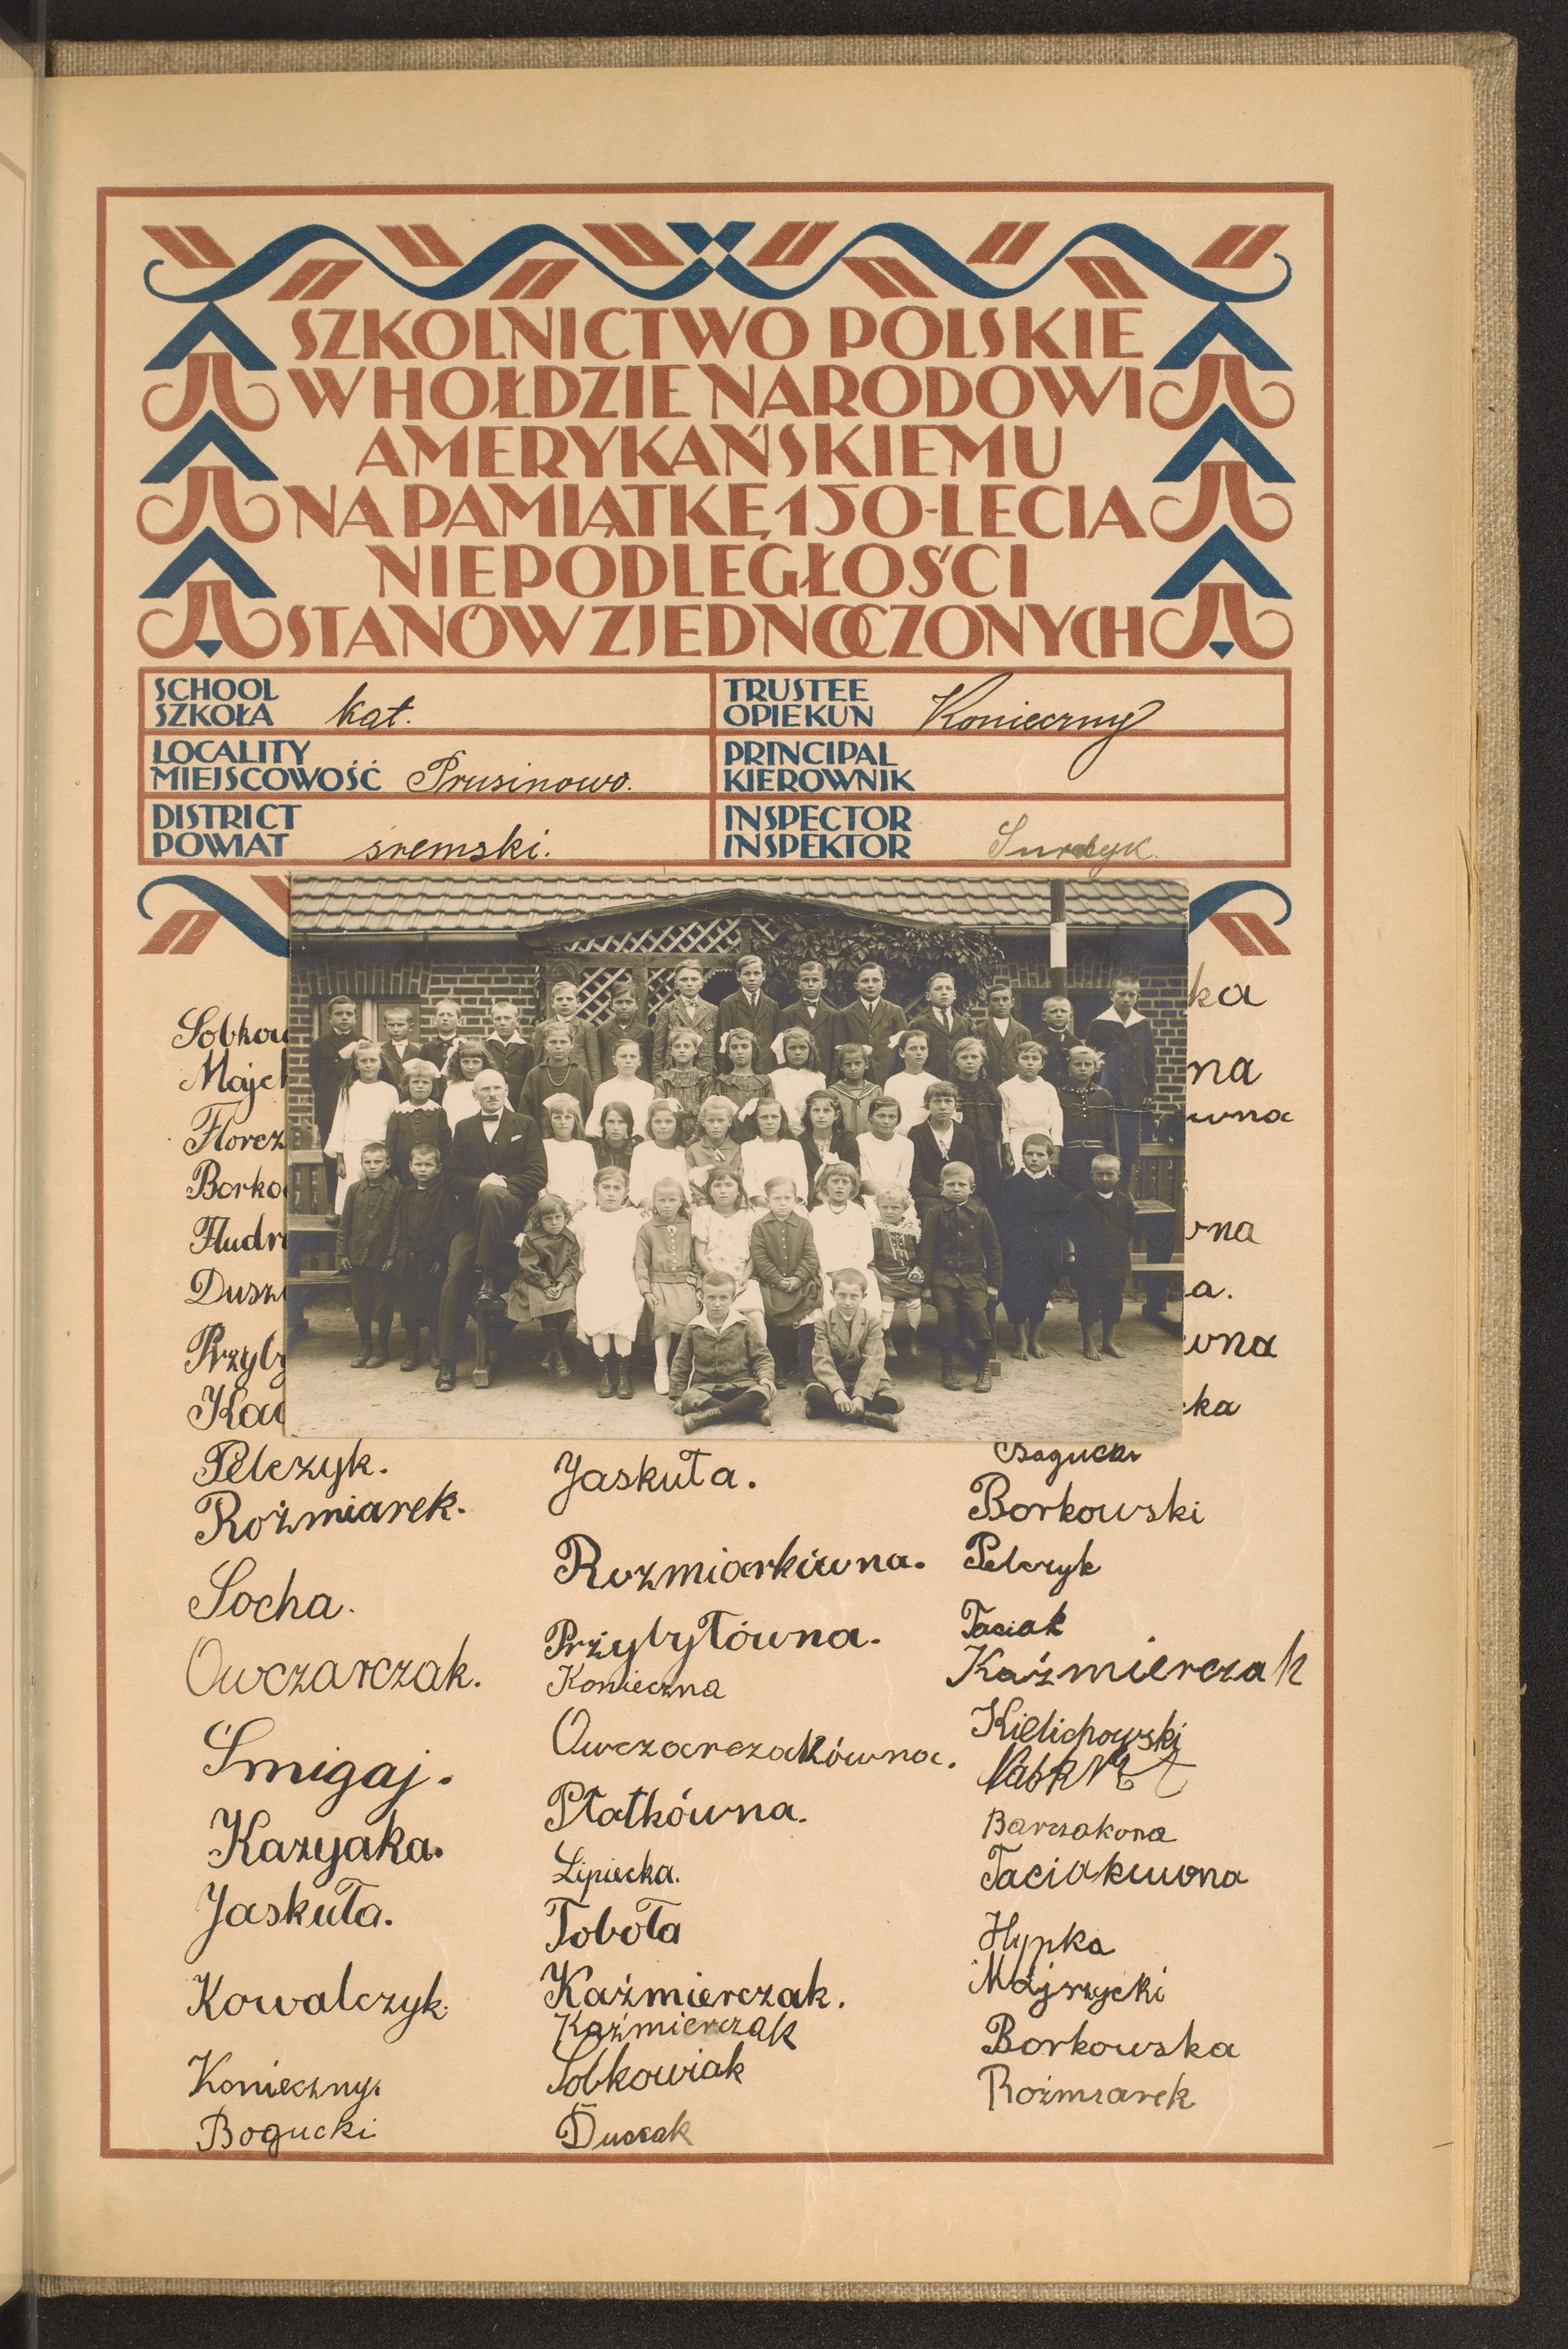 SZKOLNICTWO POLSKIE
W HOŁDZIE NARODOWI
AMERYKAŃSKIEMU
NA PAMIĄTKĘ 150-LECIA
NIEPODLEGŁOŚCI
STANÓW ZJEDNOCZONYCH
SCHOOL
SZKOŁA kat.
TRUSTEE
OPIEKUN Konieczny
LOCALITY
MIEJSCOWOŚĆ Prusinowo.
PRINCIPAL
KIEROWNIK
DISTRICT
POWIAT śremski.
INSPECTOR
INSPEKTOR
Pelczyk.
Rożmiarek.
Socha.
Owczarczak.
Śmigaj.
Kazyaka.
Jaskuła.
Kowalczyk.
Konieczny.
Bogucki
Jaskuła.
Rozmiarkówna.
Przybyłówna.
Konieczna
Owczarczakówna.
Płatkówna.
Lipiecka.
Toboła
Kaźmierczak.
Kaźmierczak
Sobkowiak
Duszak
ka
na
wna
wna
a.
wna
cka
Bogucki
Borkowski
Pelczyk
Taciak
Kaźmierczak
Kielichowski
Barczakona
Taciakuwna
Hypka
Majszycki
Borkowska
Rożmiarek